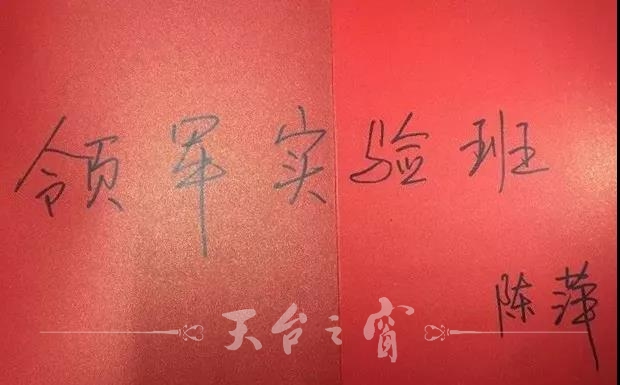 领军实验班
陈萍
天台之窗